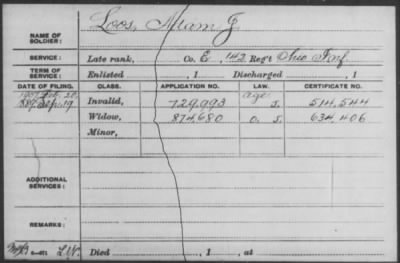 NAME OF SOLDIER: Loos, Adam J
SERVICE: Late rank, Co. E, 142 Reg't Ohio Inf.
TERM OF SERVICE: Enlisted , 1 Discharged , 1
DATE OF FILING. CLASS. APPLICATION NO. LAW. CERTIFICATE NO.
Invalid, 729,993 age S. 514,544
Widow, 874,680 O. S. 634,406
Minor,
ADDITIONAL SERVICES:
REMARKS:
Died , 1 , at